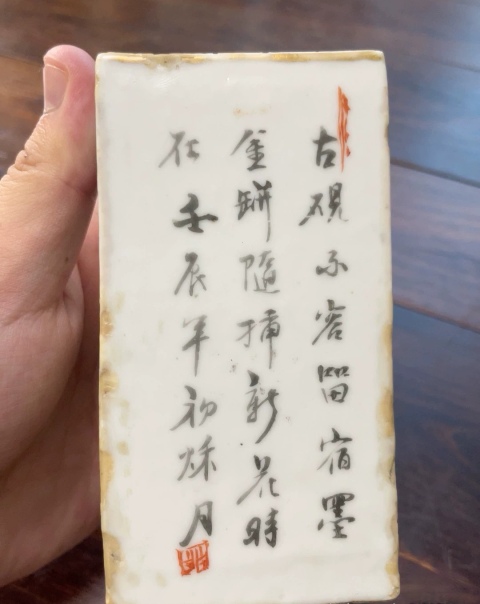 古硯不容畱宿墨
金缾隨揷新花時
在壬辰年初秌月